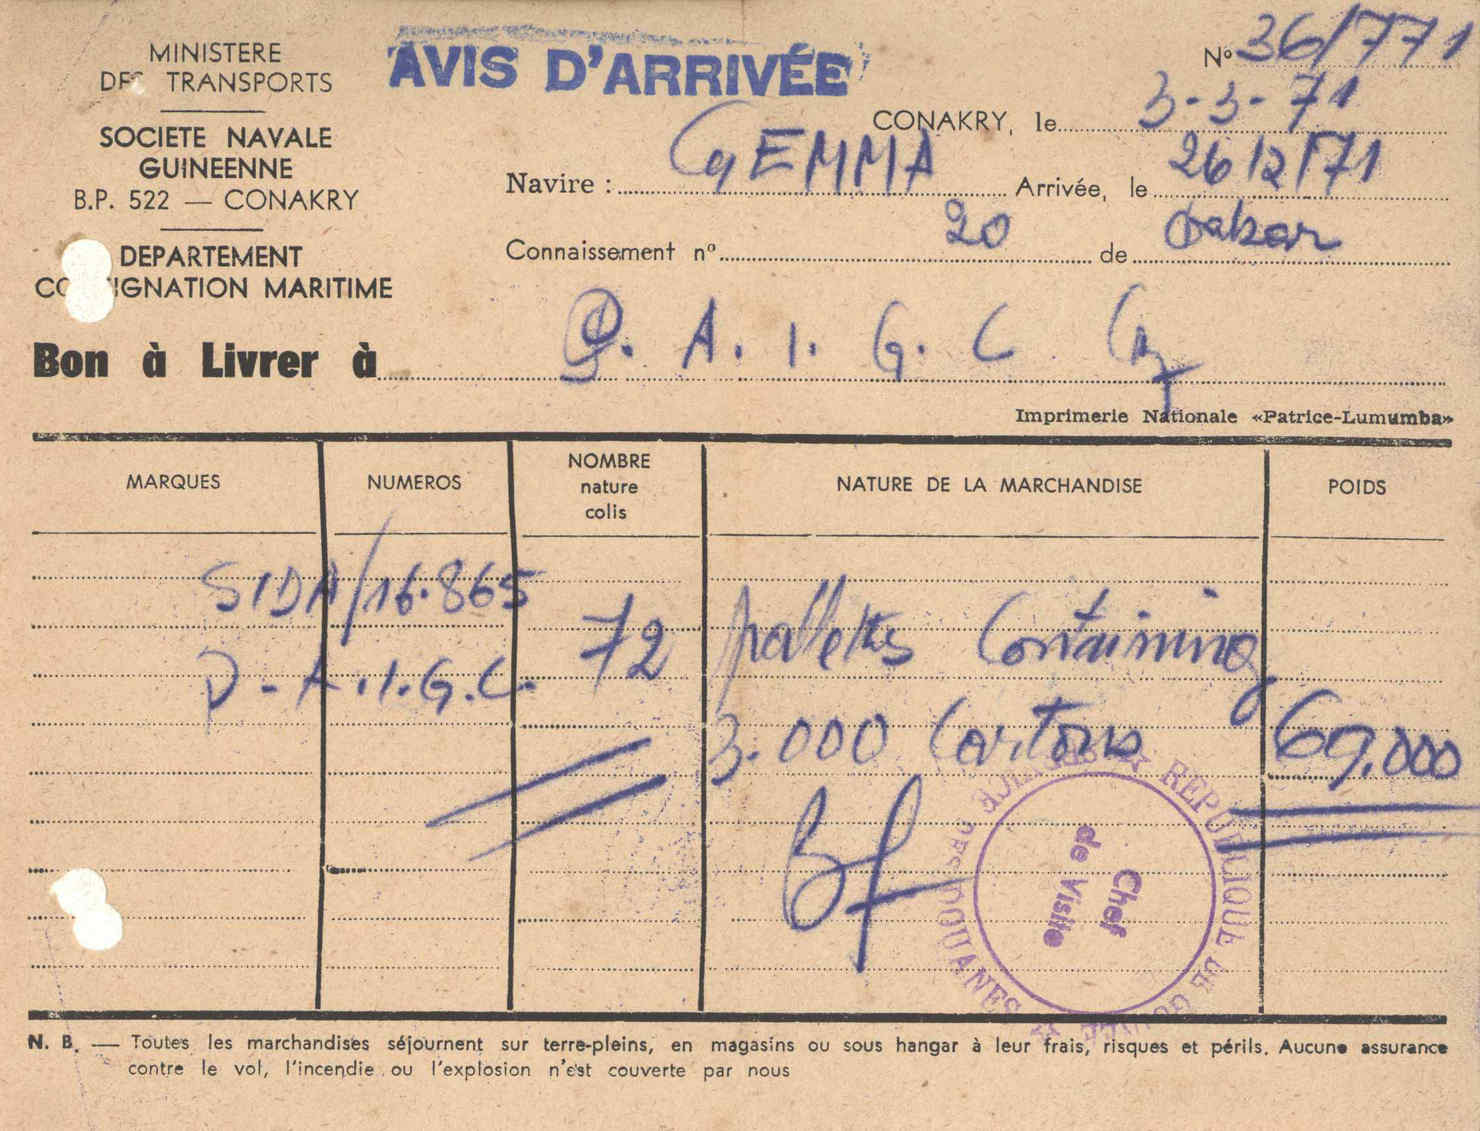 MINISTERE
DES TRANSPORTS
SOCIETE NAVALE
GUINEENNE
B.P. 522 — CONAKRY
DEPARTEMENT
CONSIGNATION MARITIME
AVIS D'ARRIVÉE
N° 36/771
CONAKRY, le 3-3-71
Navire : GEMMA Arrivée, le 26/2/71
Connaissement n° 20 de Dakar
Bon à Livrer à P.A.I.G.C
Imprimerie Nationale «Patrice-Lumumba»
MARQUES NUMEROS NOMBRE nature colis NATURE DE LA MARCHANDISE POIDS
SIDA/16.865
P.A.I.G.C. 72 pallets Containing
3.000 Cartons 69.000
REPUBLIQUE DE GUINEE
SERVICE DES DOUANES
Chef
de Visite
N. B. — Toutes les marchandises séjournent sur terre-pleins, en magasins ou sous hangar à leur frais, risques et périls. Aucune assurance
contre le vol, l'incendie ou l'explosion n'est couverte par nous